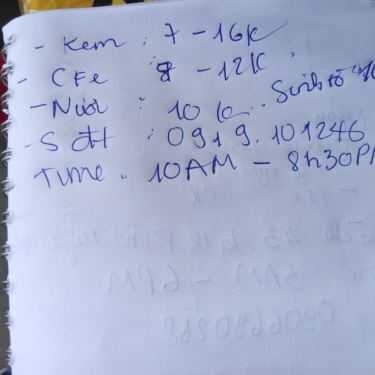 - Kem : 7 - 16K
- CFe : 8 - 12K
- Nước : 10K . . Sinh tố
- SĐT : 0919.101246
Time . 10AM - 8h30PM